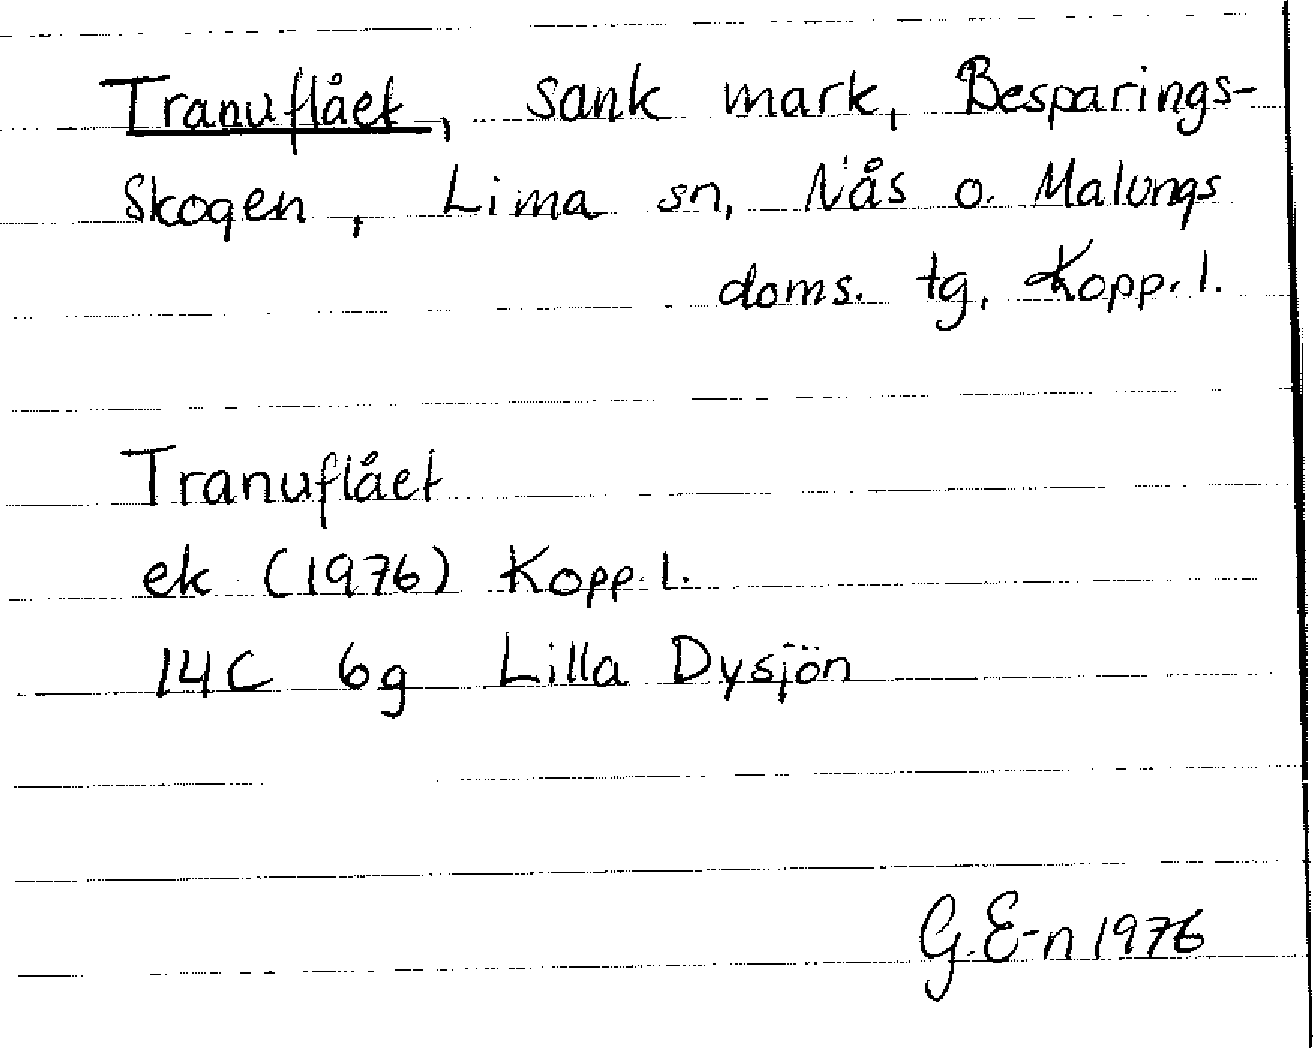 Tranuflået, sank mark, Besparings-
skogen, Lima sn, Nås o. Malungs
doms. tg, Kopp. l.
Tranuflået
ek (1976) Kopp. l.
14C 6g Lilla Dysjön
G. E-n 1976